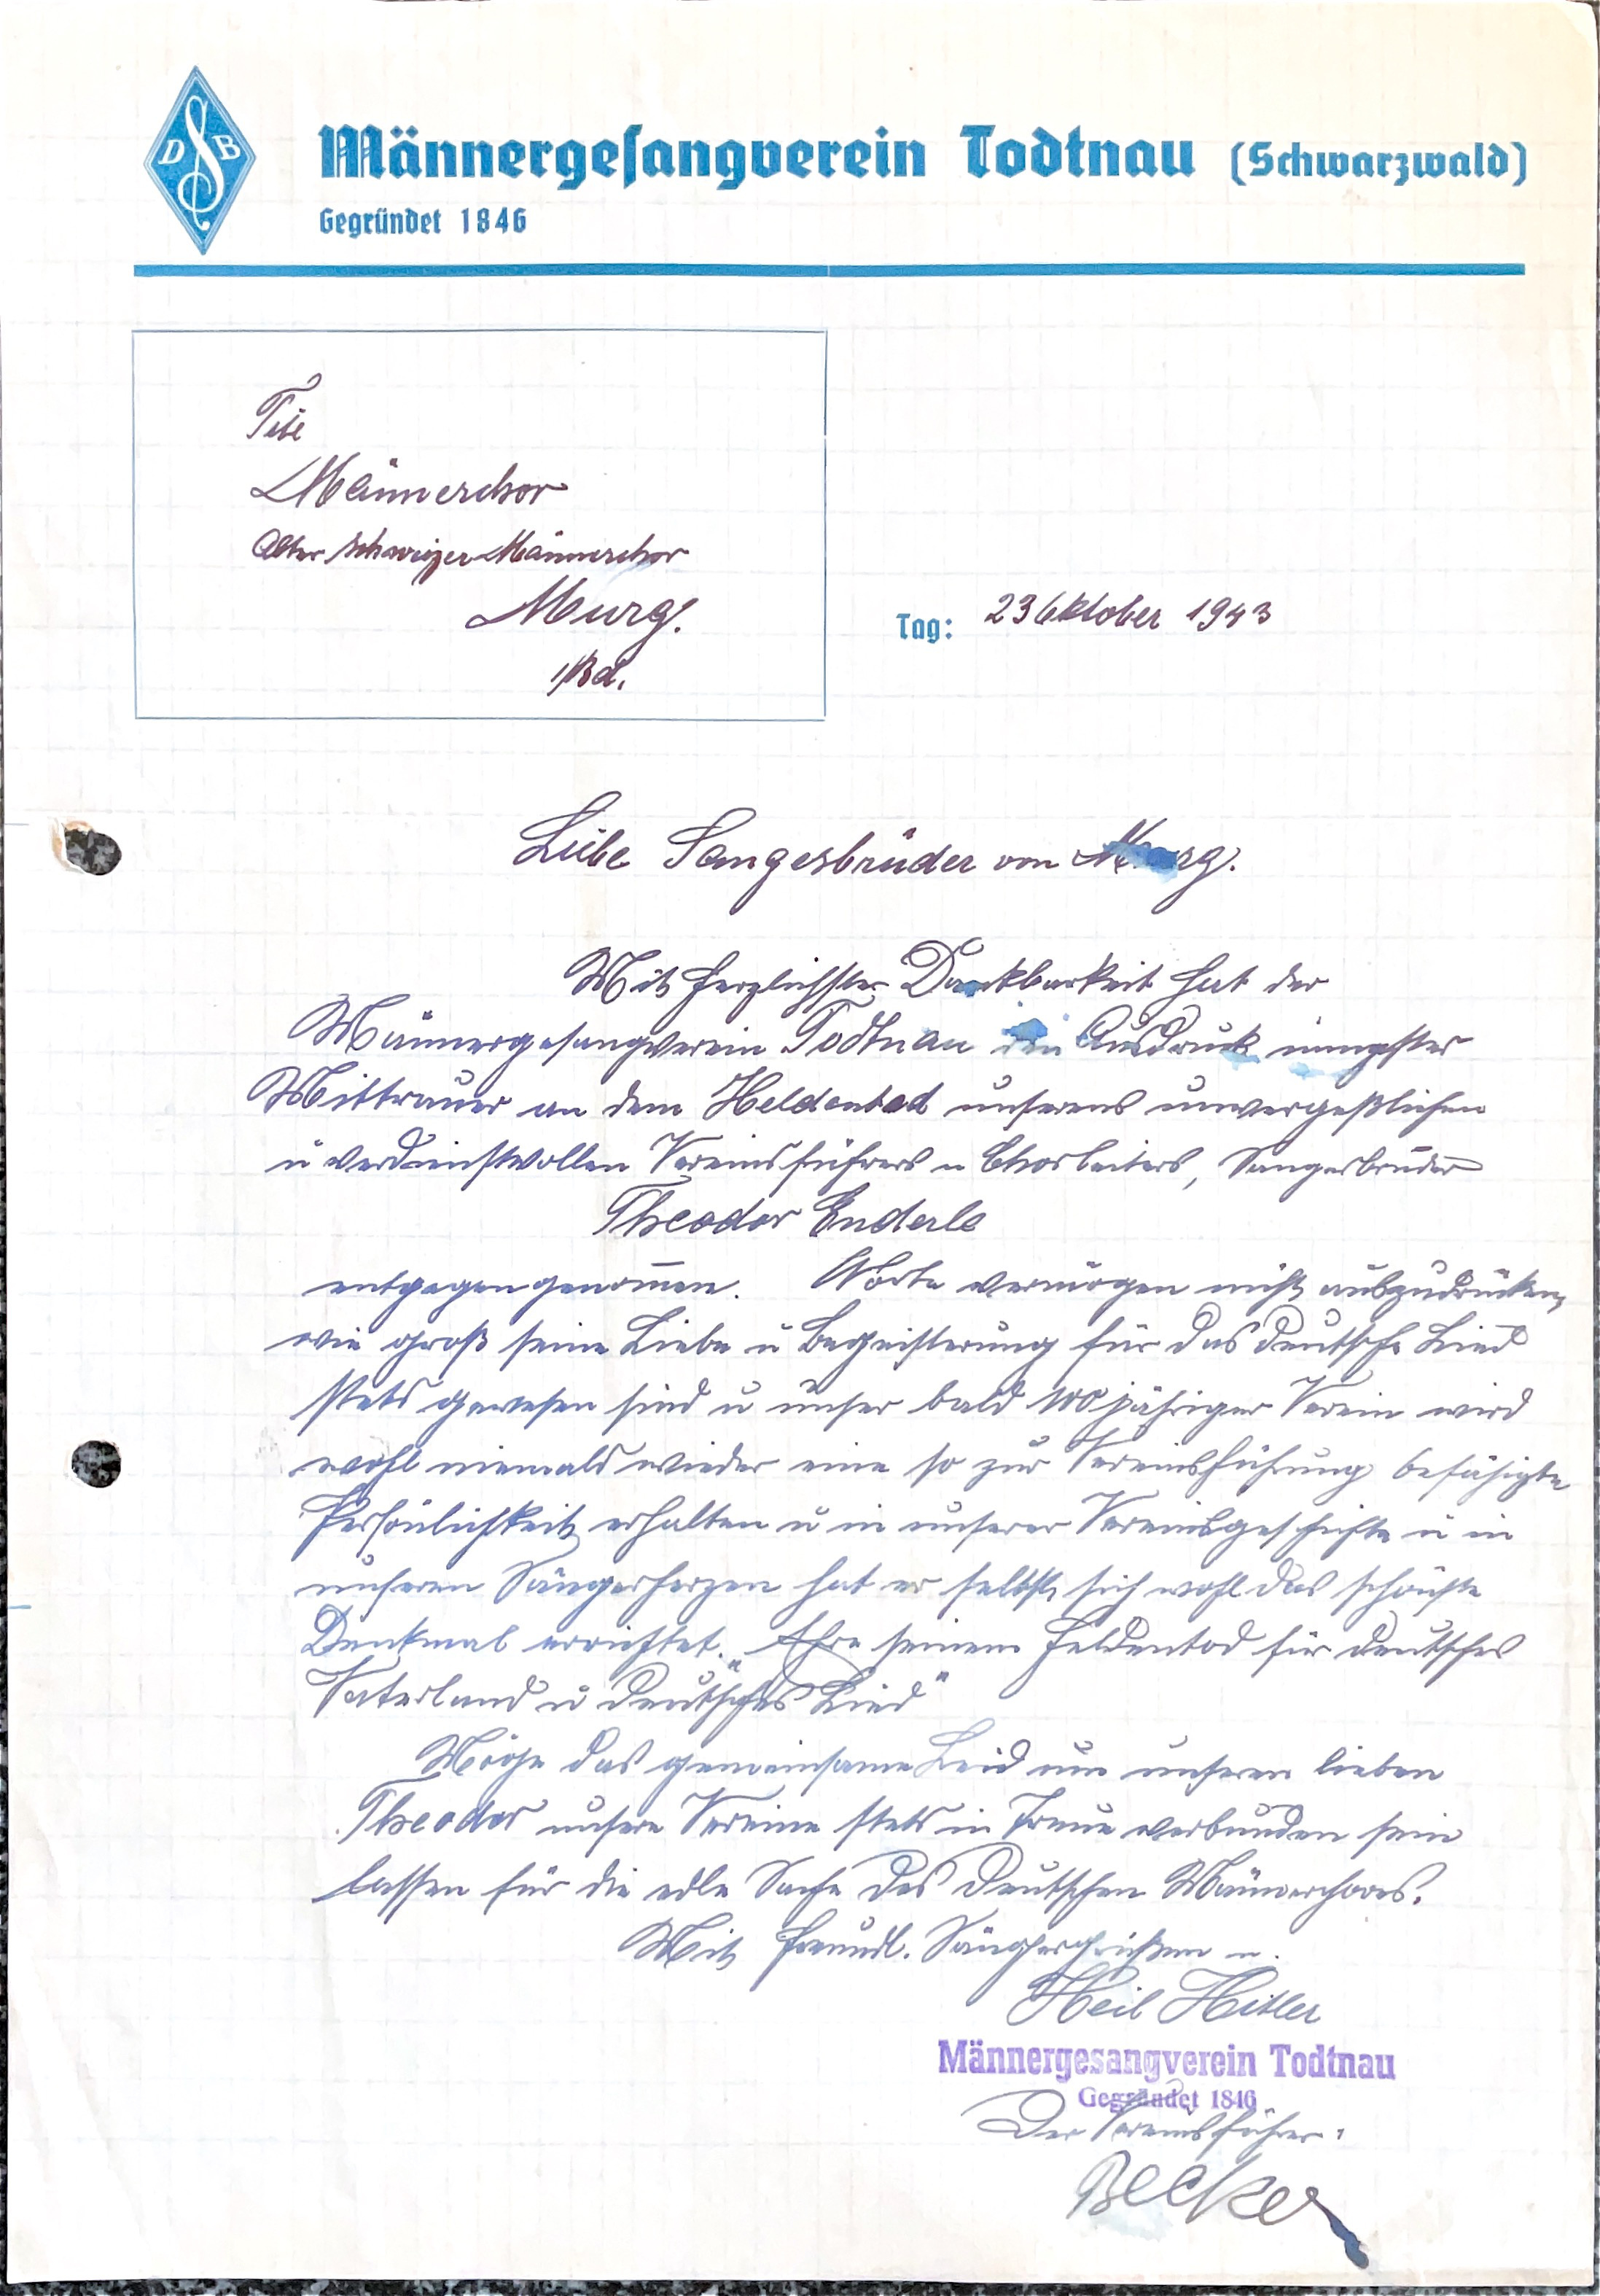 DSB
Männergesangverein Todtnau (Schwarzwald)
Gegründet 1846
Männerchor
Alter Schweizer Männerchor
Murg.
i/Bd.
Tag: 23 Oktober 1943
Liebe Sangesbrüder von Murg.
Mit herzlichster Dankbarkeit hat der
Männergesangverein Todtnau den Ausdruck innigster
Mittrauer an dem Heldentod unseres unvergeßlichen
u verdienstvollen Vereinsführers u Chorleiters, Sangesbruder
Theodor Enderle
entgegengenom̅en. Worte vermögen nicht auszudrücken,
wie groß seine Liebe u Begeisterung für das deutsche Lied
stets gewesen sind u unser bald 100 jähriger Verein wird
wohl niemals wieder eine so zur Vereinsführung befähigte
Persönlichkeit erhalten u in unserer Vereinsgeschichte u in
unseren Sängerherzen hat er selbst sich wohl das schönste
Denkmal errichtet. „Ehre seinem Heldentod für deutsches
Vaterland u deutsches Lied"
Möge das gemeinsame Leid um unseren lieben
Theodor unsere Vereine stets in Treue verbunden sein
lassen für die edle Sache des Deutschen Männerchores.
Mit freundl. Sängergrüßen u.
Heil Hitler
Männergesangverein Todtnau
Gegründet 1846
Der Vereinsführer:
Becker